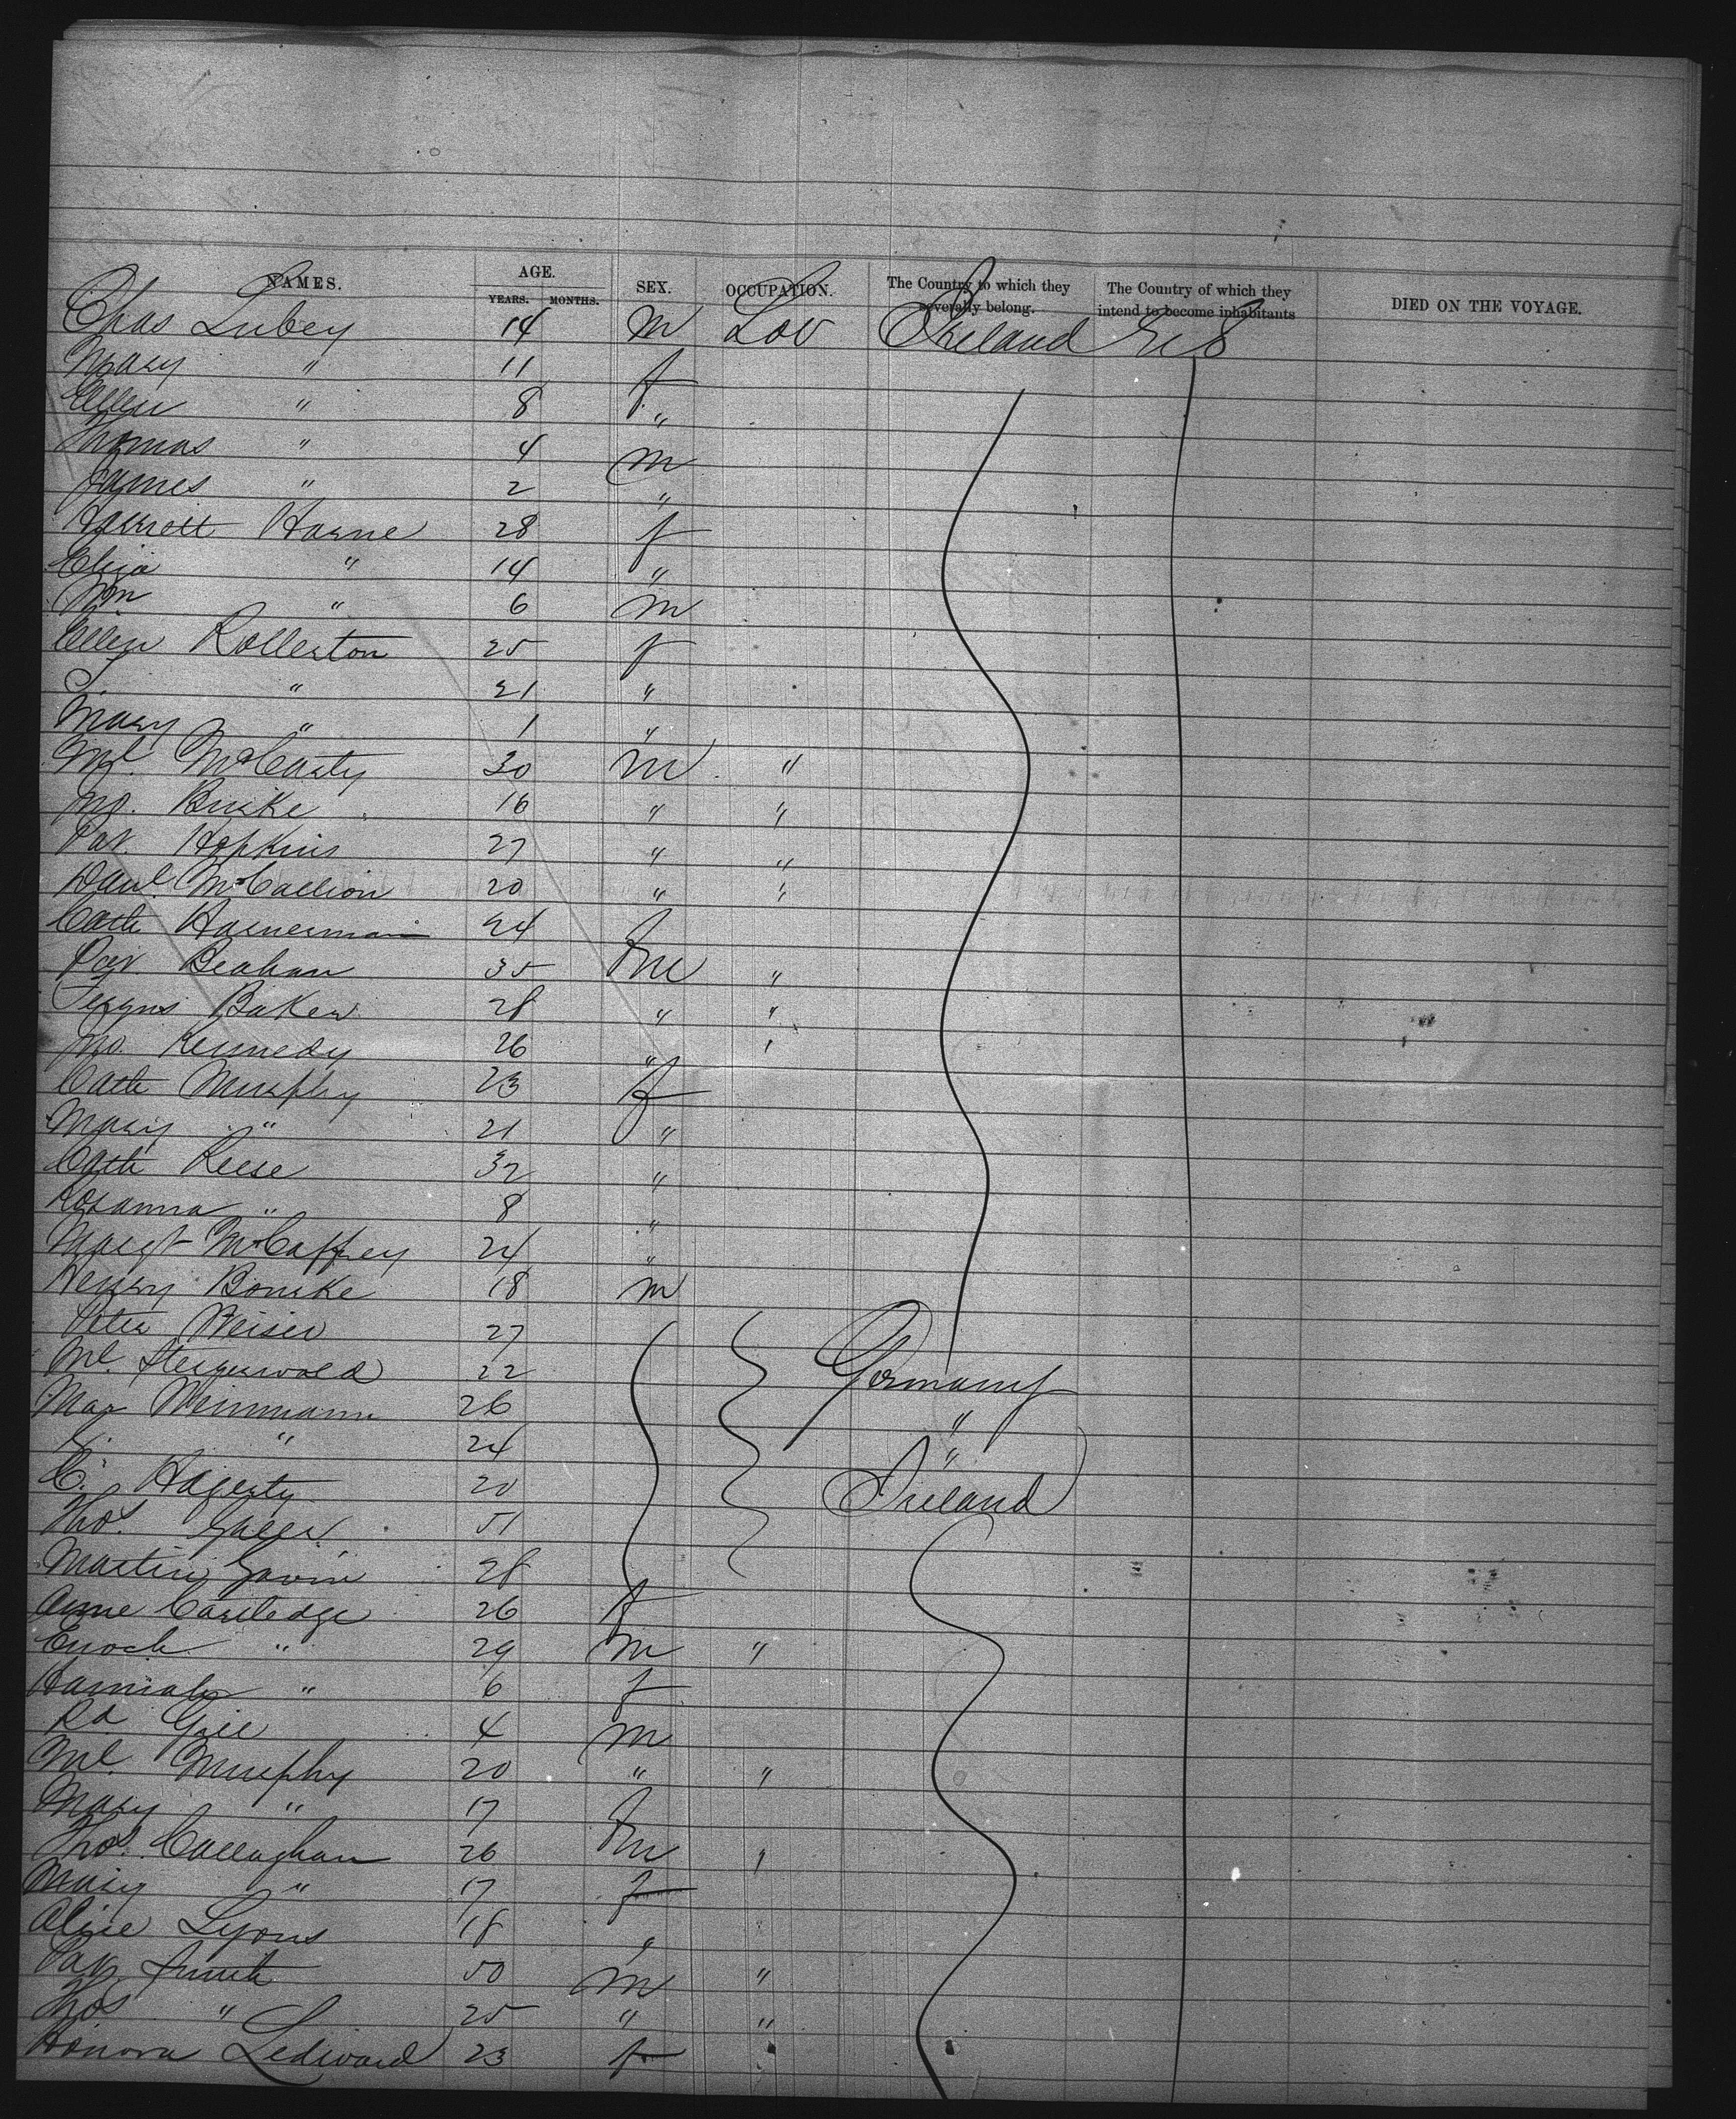 NAMES. AGE. YEARS. MONTHS. SEX. OCCUPATION. The Country to which they severally belong. The Country of which they intend to become inhabitants DIED ON THE VOYAGE.
Chas Lubey 14 m Lab Ireland U S
Mary " 11 f
Ellen " 8 "
Thomas " 4 m
James " 2 "
Harriett Horne 28 f
Eliza " 14 "
Wm " 6 m
Ellen Rollerton 25 f
" 21 "
Mary " 1 "
Ml. McCarty 30 m "
Jno. Burke 16 " "
Pat. Hopkins 27 " "
Danl McCallion 20 " "
Cath Hannerman 24 f
Beahan 35 m "
Baker 28 " "
Jno. Kennedy 26 " "
Cath Murphy 23 f
Mary " 21 "
Cath Reese 32 "
Rosanna " 8 "
Margt McCaffrey 24 "
Henry Bourke 18 m
Peter Weiser 27 Germany
Ml. Steigerwald 22
Max Weinmann 26 "
" 24 "
C. Hagerty 20 Ireland
Thos. 51
Martin Gavin 28
Anne Cartledge 26 f
Enoch " 29 m "
Hannah " 6 f
Rd Gill 4 m
Ml. Murphy 20 " "
Mary " 17 f
Thos. Callaghan 26 m "
Mary " 17 f
Alice Lyons 18 " "
Pat. Smith 50 m "
Thos " 25 " "
Honora Lediward 23 f "